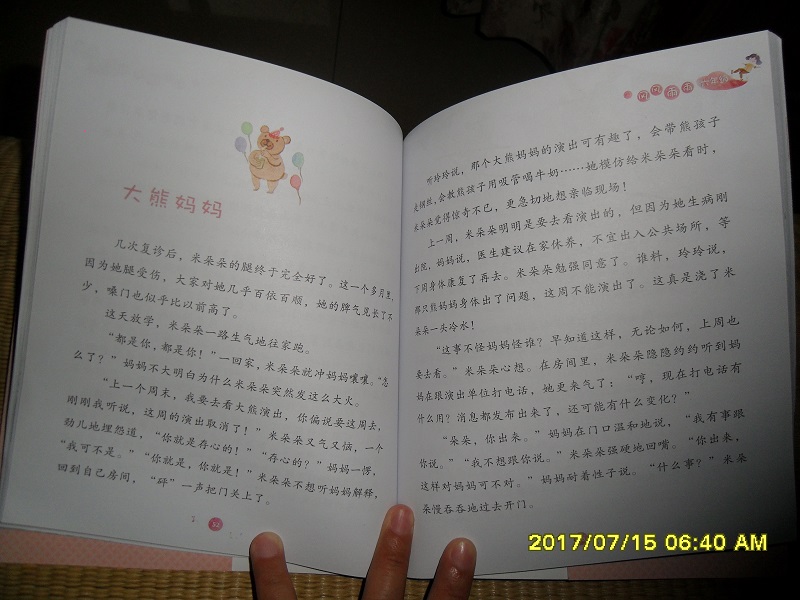 大熊妈妈
几次复诊后，米朵朵的腿终于完全好了。这一个多月里，
因为她腿受伤，大家对她几乎百依百顺，她的脾气见长了不
少，嗓门也似乎比以前高了。
这天放学，米朵朵一路生气地往家跑。
“都是你，都是你！”一回家，米朵朵就冲妈妈嚷嚷。“怎
么了？”妈妈不大明白为什么米朵朵突然发这么大火。
“上一个周末，我要去看大熊演出，你偏说要这周去，
刚刚我听说，这周的演出取消了！”米朵朵又气又恼，一个
劲儿地埋怨道，“你就是存心的！”“存心的？”妈妈一愣，
“我可不是。”“你就是，你就是！”米朵朵不想听妈妈解释，
回到自己房间，“砰”一声把门关上了。
听玲玲说，那个大熊妈妈的演出可有趣了，会带熊孩子
走钢丝，会教熊孩子用吸管喝牛奶……她模仿给米朵朵看时，
米朵朵觉得惊奇不已，更急切地想亲临现场！
上一周，米朵朵明明是要去看演出的，但因为她生病刚
出院，妈妈说，医生建议在家休养，不宜出入公共场所，等
下周身体康复了再去。米朵朵勉强同意了。谁料，玲玲说，
那只熊妈妈身体出了问题，这周不能演出了。这真是浇了米
朵朵一头冷水！
“这事不怪妈妈怪谁？早知道这样，无论如何，上周也
要去看。”米朵朵心想。在房间里，米朵朵隐隐约约听到妈
妈在跟演出单位打电话，她更来气了：“哼，现在打电话有
什么用？消息都发布出来了，还可能有什么变化？”
“朵朵，你出来。”妈妈在门口温和地说，“我有事跟
你说。”“我不想跟你说。”米朵朵强硬地回嘴。“你出来，
这样对妈妈可不对。”妈妈耐着性子说。“什么事？”米朵
朵慢吞吞地过去开门。
2017/07/15 06:40 AM